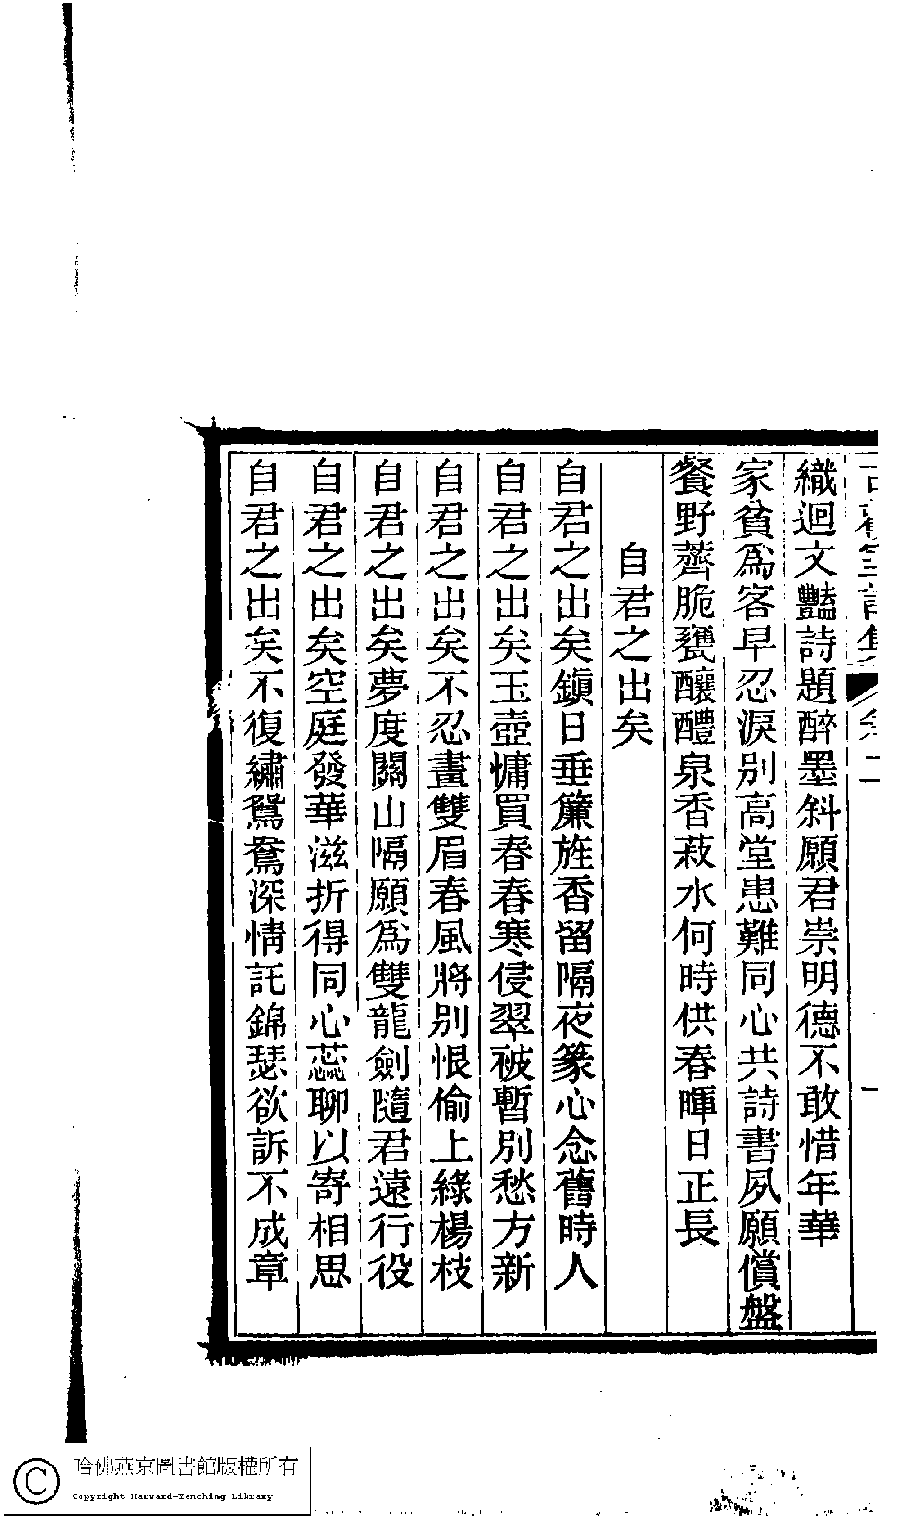 織迴文豔詩題醉墨斜願君崇明德不敢惜年華
家貧爲客早忍淚別高堂患難同心共詩書夙願償盤
餐野薺脆甕釀醴泉香菽水何時供春暉日正長
自君之出矣
自君之出矣鎭日垂簾旌香留隔夜篆心念舊時人
自君之出矣玉壺慵買春春寒侵翠被暫別愁方新
自君之出矣不忍畫雙眉春風將別恨偷上綠楊枝
自君之出矣夢度關山隔願爲雙龍劍隨君遠行役
自君之出矣空庭發華滋折得同心蕊聊以寄相思
自君之出矣不復繡鴛鴦深情託錦瑟欲訴不成章
哈佛燕京圖書館版權所有
Copyright Harvard-Yenching Library